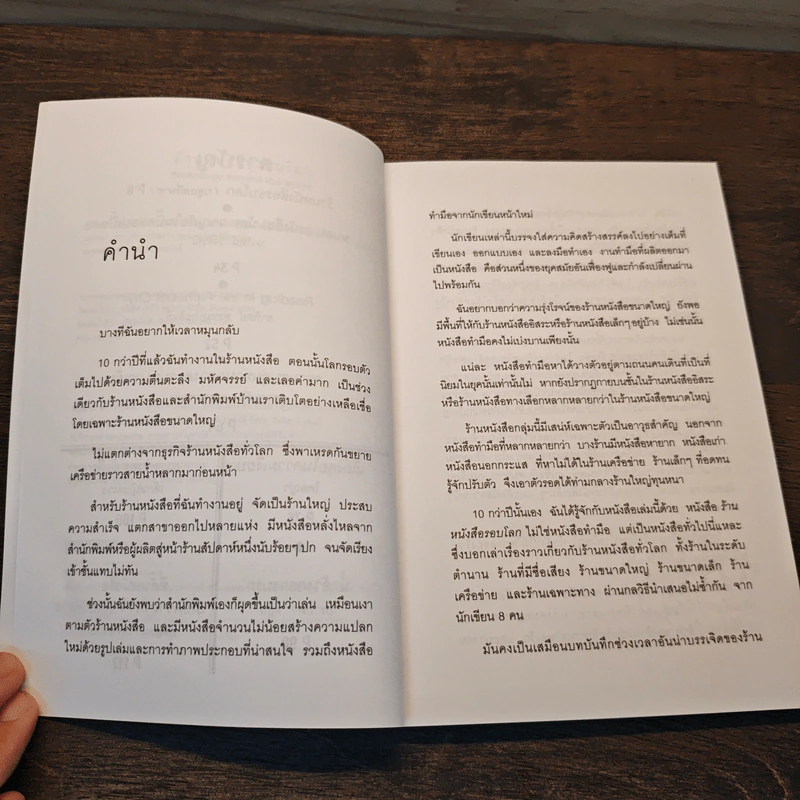 คำนำ
บางทีฉันอยากให้เวลาหมุนกลับ
10 กว่าปีที่แล้วฉันทำงานในร้านหนังสือ ตอนนั้นโลกรอบตัว
เต็มไปด้วยความตื่นตะลึง มหัศจรรย์ และเลอค่ามาก เป็นช่วง
เดียวกับร้านหนังสือและสำนักพิมพ์บ้านเราเติบโตอย่างเหลือเชื่อ
โดยเฉพาะร้านหนังสือขนาดใหญ่
ไม่แตกต่างจากธุรกิจร้านหนังสือทั่วโลก ซึ่งพาเหรดกันขยาย
เครือข่ายราวสายน้ำหลากมาก่อนหน้า
สำหรับร้านหนังสือที่ฉันทำงานอยู่ จัดเป็นร้านใหญ่ ประสบ
ความสำเร็จ แตกสาขาออกไปหลายแห่ง มีหนังสือหลั่งไหลจาก
สำนักพิมพ์หรือผู้ผลิตสู่หน้าร้านสัปดาห์หนึ่งนับร้อยๆ ปก จนจัดเรียง
เข้าชั้นแทบไม่ทัน
ช่วงนั้นฉันยังพบว่าสำนักพิมพ์เองก็ผุดขึ้นเป็นว่าเล่น เหมือนเงา
ตามตัวร้านหนังสือ และมีหนังสือจำนวนไม่น้อยสร้างความแปลก
ใหม่ด้วยรูปเล่มและการทำภาพประกอบที่น่าสนใจ รวมถึงหนังสือ
ทำมือจากนักเขียนหน้าใหม่
นักเขียนเหล่านี้บรรจงใส่ความคิดสร้างสรรค์ลงไปอย่างเต็มที่
เขียนเอง ออกแบบเอง และลงมือทำเอง งานทำมือที่ผลิตออกมา
เป็นหนังสือ คือส่วนหนึ่งของยุคสมัยอันเฟื่องฟูและกำลังเปลี่ยนผ่าน
ไปพร้อมกัน
ฉันอยากบอกว่าความรุ่งโรจน์ของร้านหนังสือขนาดใหญ่ ยังพอ
มีพื้นที่ให้กับร้านหนังสืออิสระหรือร้านหนังสือเล็กๆ อยู่บ้าง ไม่เช่นนั้น
หนังสือทำมือคงไม่เบ่งบานเพียงนั้น
แน่ละ หนังสือทำมือหาได้วางตัวอยู่ตามถนนคนเดินที่เป็นที่
นิยมในยุคนั้นเท่านั้นไม่ หากยังปรากฏกายบนชั้นในร้านหนังสืออิสระ
หรือร้านหนังสือทางเลือกหลากหลายกว่าในร้านหนังสือขนาดใหญ่
ร้านหนังสือกลุ่มนี้มีเสน่ห์เฉพาะตัวเป็นอาวุธสำคัญ นอกจาก
หนังสือทำมือที่หลากหลายกว่า บางร้านมีหนังสือหายาก หนังสือเก่า
หนังสือนอกกระแส ที่หาไม่ได้ในร้านเครือข่าย ร้านเล็กๆ ที่อดทน
รู้จักปรับตัว จึงเอาตัวรอดได้ท่ามกลางร้านใหญ่ทุนหนา
10 กว่าปีนั้นเอง ฉันได้รู้จักกับหนังสือเล่มนี้ด้วย หนังสือ ร้าน
หนังสือรอบโลก ไม่ใช่หนังสือทำมือ แต่เป็นหนังสือทั่วไปนี่แหละ
ซึ่งบอกเล่าเรื่องราวเกี่ยวกับร้านหนังสือทั่วโลก ทั้งร้านในระดับ
ตำนาน ร้านที่มีชื่อเสียง ร้านขนาดใหญ่ ร้านขนาดเล็ก ร้าน
เครือข่าย และร้านเฉพาะทาง ผ่านกลวิธีนำเสนอไม่ซ้ำกัน จาก
นักเขียน 8 คน
มันคงเป็นเสมือนบทบันทึกช่วงเวลาอันน่าบรรเจิดของร้าน